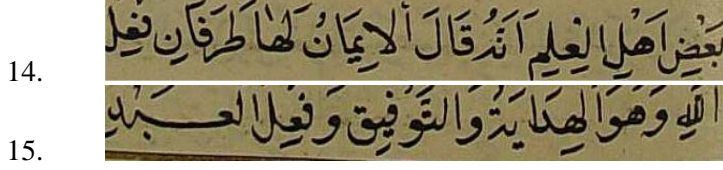 14. بَعْضِ اَهْلِ الْعِلْمِ اَنَّهُ قَالَ اَلْاِيمَانُ لَهَا طَرَفَانِ فِعْلُ
15. اللّٰهِ وَهُوَ الْهِدَايَةُ وَالتَّوْفِيقُ وَفِعْلُ الْعَبْدِ